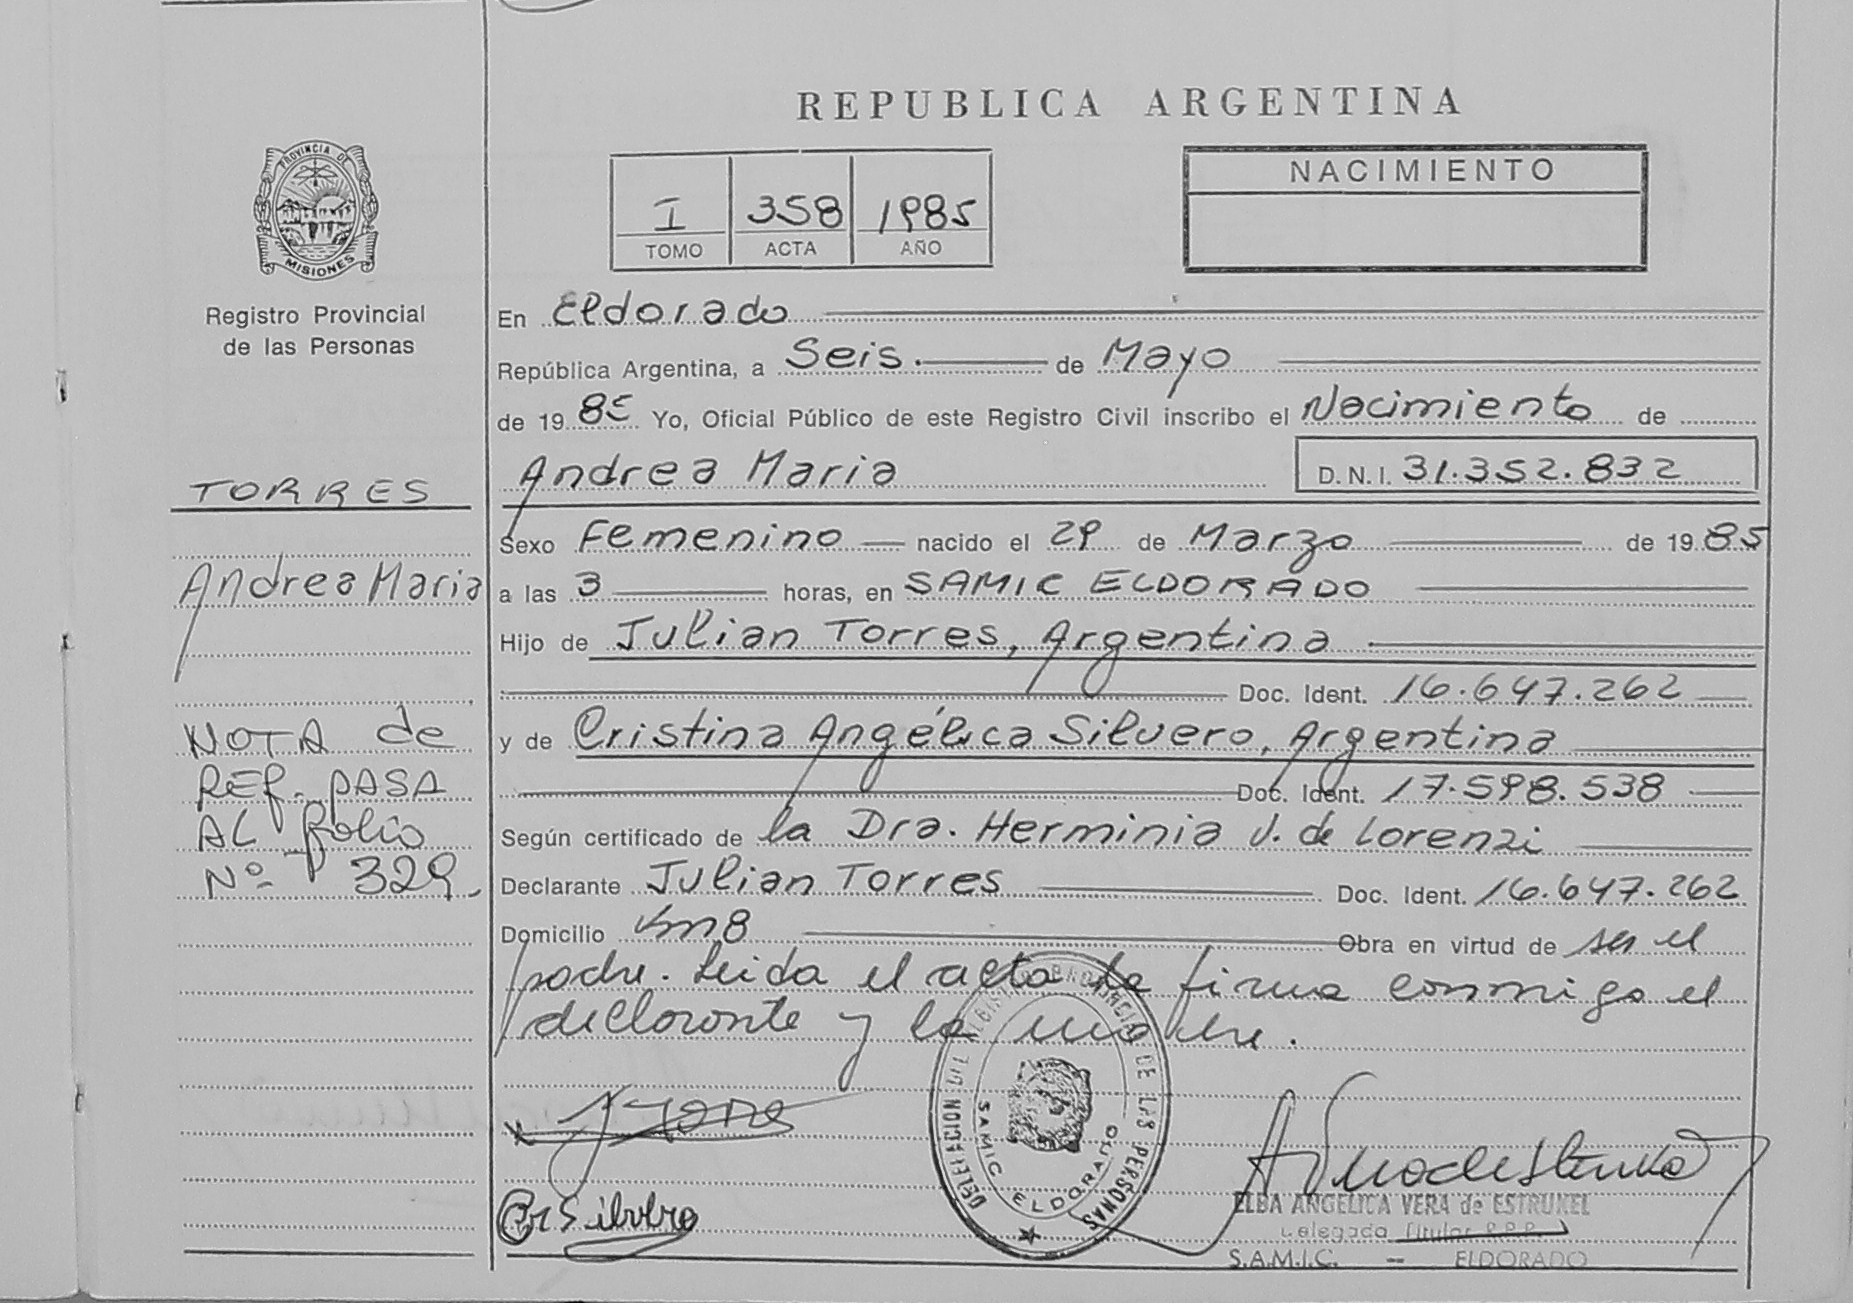 REPUBLICA ARGENTINA
PROVINCIA DE
MISIONES
Registro Provincial
de las Personas
I 358 1985
TOMO ACTA AÑO
NACIMIENTO
En Eldorado
República Argentina, a Seis de Mayo
de 19 85 Yo, Oficial Público de este Registro Civil inscribo el Nacimiento de
TORRES
Andrea Maria D.N.I. 31.352.832
Sexo Femenino nacido el 29 de Marzo de 19 85
Andrea Maria
a las 3 horas, en SAMIC ELDORADO
Hijo de Julian Torres, Argentina
Doc. Ident. 16.647.262
y de Cristina Angélica Silvero, Argentina
Doc. Ident. 17.598.538
NOTA de
REF. PASA
AL folio
Nº 329
Según certificado de la Dra. Herminia J. de Lorenzi
Declarante Julian Torres Doc. Ident. 16.647.262
Domicilio km 8 Obra en virtud de ser el
padre. Leida el acta la firma conmigo el
declarante y la madre.
DELEGACION DEL REGISTRO PROVINCIAL DE LAS PERSONAS
SAMIC ELDORADO
Cr Silvero
ELBA ANGELICA VERA de ESTRUKEL
Delegada Titular R.P.P.
S.A.M.I.C. -- ELDORADO